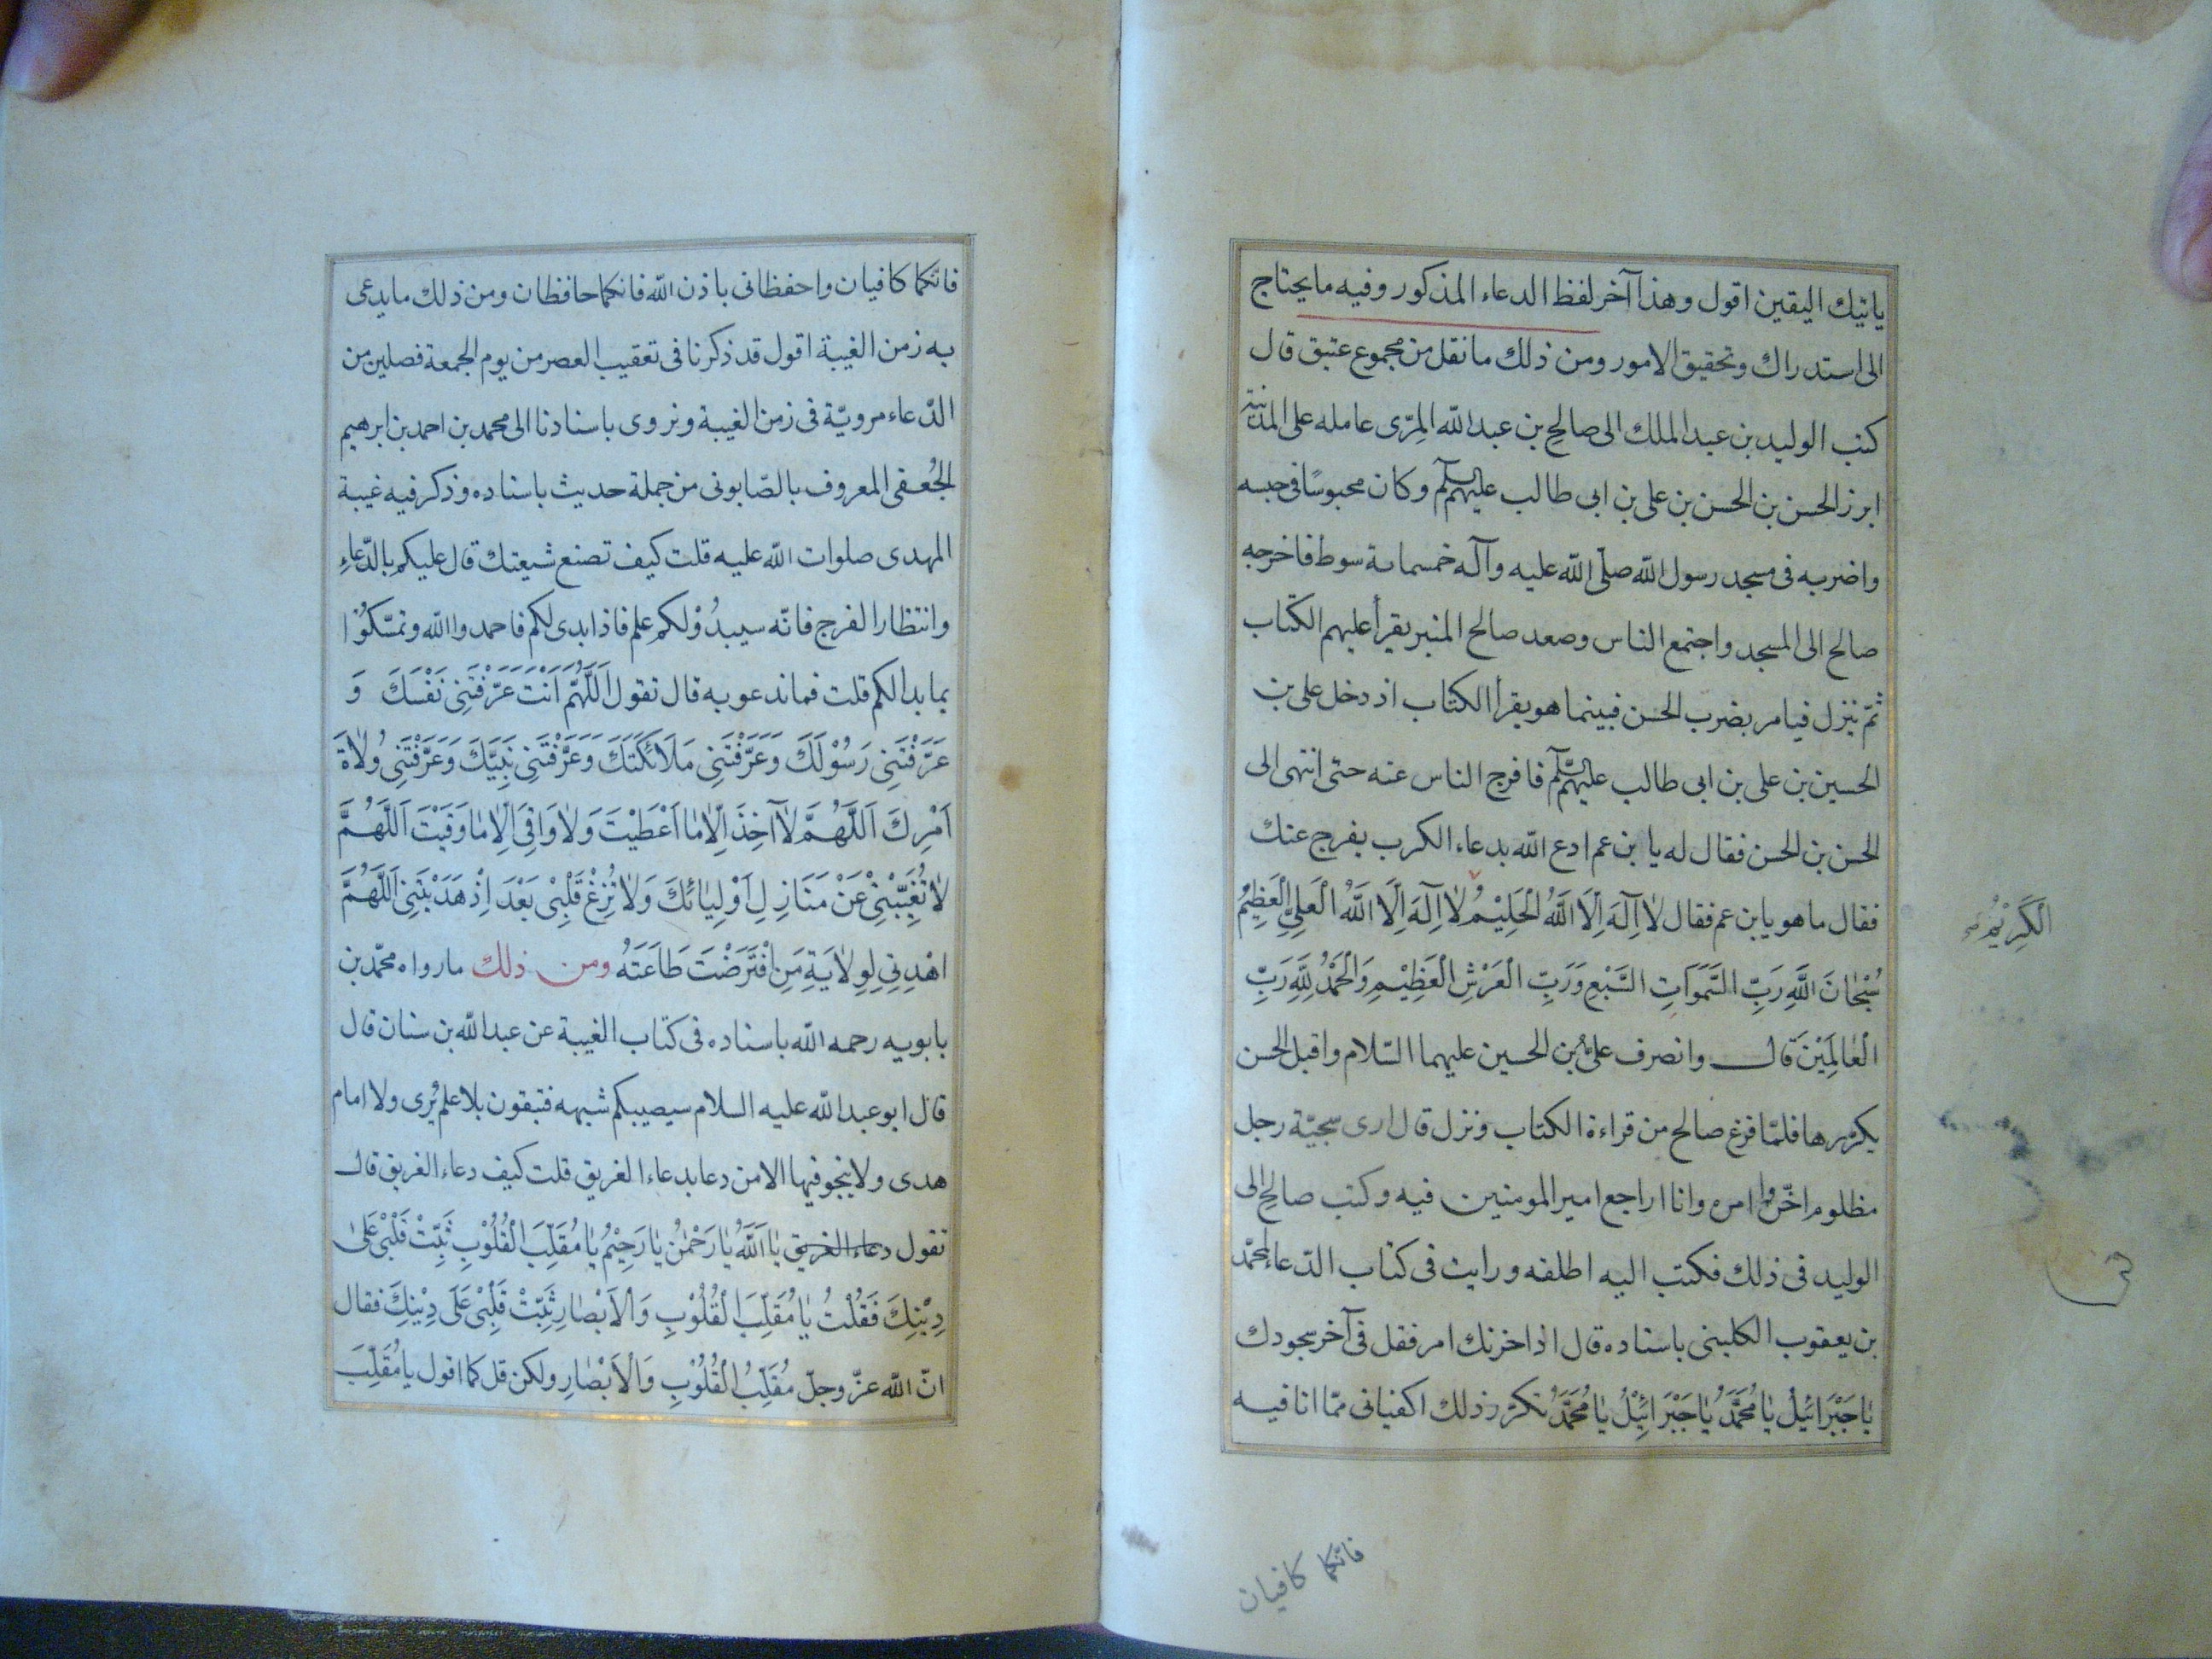 ياتيك اليقين اقول وهذا آخر لفظ الدعاء المذكور وفيه ما يحتاج
الى استدراك وتحقيق الامور ومن ذلك ما نقل من مجموع عتيق قال
كتب الوليد بن عبد الملك الى صالح بن عبد الله المرّى عامله على المدينة
ابرز الحسن بن الحسن بن على بن ابى طالب عليهم السلم وكان محبوسًا فى حبسه
واضربه فى مسجد رسول الله صلّى الله عليه وآله خمسمائة سوط فاخرجه
صالح الى المسجد واجتمع الناس وصعد صالح المنبر يقرأ عليهم الكتاب
ثمّ ينزل فيامر بضرب الحسن فبينما هو يقرأ الكتاب اذ دخل على بن
الحسين بن على بن ابى طالب عليهم السّلم فافرج الناس عنه حتى انتهى الى
الحسن بن الحسن فقال له يا بن عم ادع الله بدعاء الكرب يفرج عنك
فقال ما هو يا بن عم فقال لٰا اِلٓهَ اِلَّا اللّٰهُ الْحَلِيْمُ لٰا اِلٓهَ اِلَّا اللّٰهُ الْعَلِىِّ الْعَظِيْمُ
الْكَرِيْمُ
سُبْحٰانَ اللّٰهِ رَبِّ السَّمَوَاتِ السَّبْعِ وَرَبِّ الْعَرْشِ الْعَظِيْمِ وَالْحَمْدُ لِلّٰهِ رَبِّ
الْعٰالَمِيْنَ قال وانصرف علىُّ بن الحسين عليهما السّلام واقبل الحسن
يكرّرها فلمّا فرغ صالح من قراءة الكتاب ونزل قال ارى سجيّة رجل
مظلوم اخّروا امره وانا اراجع امير المومنين فيه وكتب صالح الى
الوليد فى ذلك فكتب اليه اطلقه ورايت فى كتاب الدّعاء لمحمّد
بن يعقوب الكلينى باسناده قال اذا حزنك امر فقل فى آخر سجودك
يٰا جَبْرَائِيْلُ يٰا مُحَمَّدُ يٰا جَبْرَائِيْلُ يٰا مُحَمَّدُ تكرّر ذلك اكفيانى ممّا انا فيه
فانّكما كافيان
فانّكما كافيان واحفظانى باذن الله فانكما حافظان ومن ذلك ما يدعى
به زمن الغيبة اقول قد ذكرنا فى تعقيب العصر من يوم الجمعة فصلين من
الدّعاء مرويّة فى زمن الغيبة ونروى باسنادنا الى محمد بن احمد بن ابرهيم
الجُعفى المعروف بالصّابونى من جملة حديث باسناده وذكر فيه غيبة
المهدى صلوات الله عليه قلت كيف تصنع شيعتك قال عليكم بالدّعاءِ
وانتظار الفرج فانّه سيبدُوْ لكم علم فاذا بدى لكم فاحمدوا الله وتمسّكُوْا
بما بدا لكم قلت فما ندعو به قال تقول اَللّٰهُمَّ اَنْتَ عَرَّفْتَنِى نَفْسَكَ وَ
عَرَّفْتَنِى رَسُوْلَكَ وَعَرَّفْتَنِى مَلَائِكَتَكَ وَعَرَّفْتَنِى نَبِيَّكَ وَعَرَّفْتَنِى وُلٰاةَ
اَمْرِكَ اَللّٰهُمَّ لٰا آخِذَ اِلّٰا مٰا اَعْطَيْتَ وَلٰا وَاقِىَ اِلّٰا مٰا وَقَيْتَ اَللّٰهُمَّ
لٰا تُغَيِّبْنِىْ عَنْ مَنَازِلِ اَوْلِيٰائِكَ وَلٰا تُزِغْ قَلْبِىْ بَعْدَ اِذْ هَدَيْتَنِى اَللّٰهُمَّ
اهْدِنِى لِوِلٰايَةِ مَنِ افْتَرَضْتَ طَاعَتَهُ ومن ذلك ما رواه محمّد بن
بابويه رحمه الله باسناده فى كتاب الغيبة عن عبد الله بن سنان قال
قال ابو عبد الله عليه السلام سيصيبكم شبهه فتبقون بلا علم يُرى ولا امام
هدى ولا ينجو فيها الا من دعا بدعاء الغريق قلت كيف دعاء الغريق قال
تقول دعاء الغريق يٰا اَللّٰهُ يٰا رَحْمٰنُ يٰا رَحِيْمُ يٰا مُقَلِّبَ الْقُلُوْبِ ثَبِّتْ قَلْبِىْ عَلىٰ
دِيْنِكَ فَقُلْتُ يٰا مُقَلِّبَ الْقُلُوْبِ وَالْاَبْصٰارِ ثَبِّتْ قَلْبِىْ عَلَى دِيْنِكَ فقال
انّ الله عزّ وجلّ مُقَلِّبُ الْقُلُوْبِ وَالْاَبْصٰارِ ولكن قل كما اقول يا مُقَلِّبَ